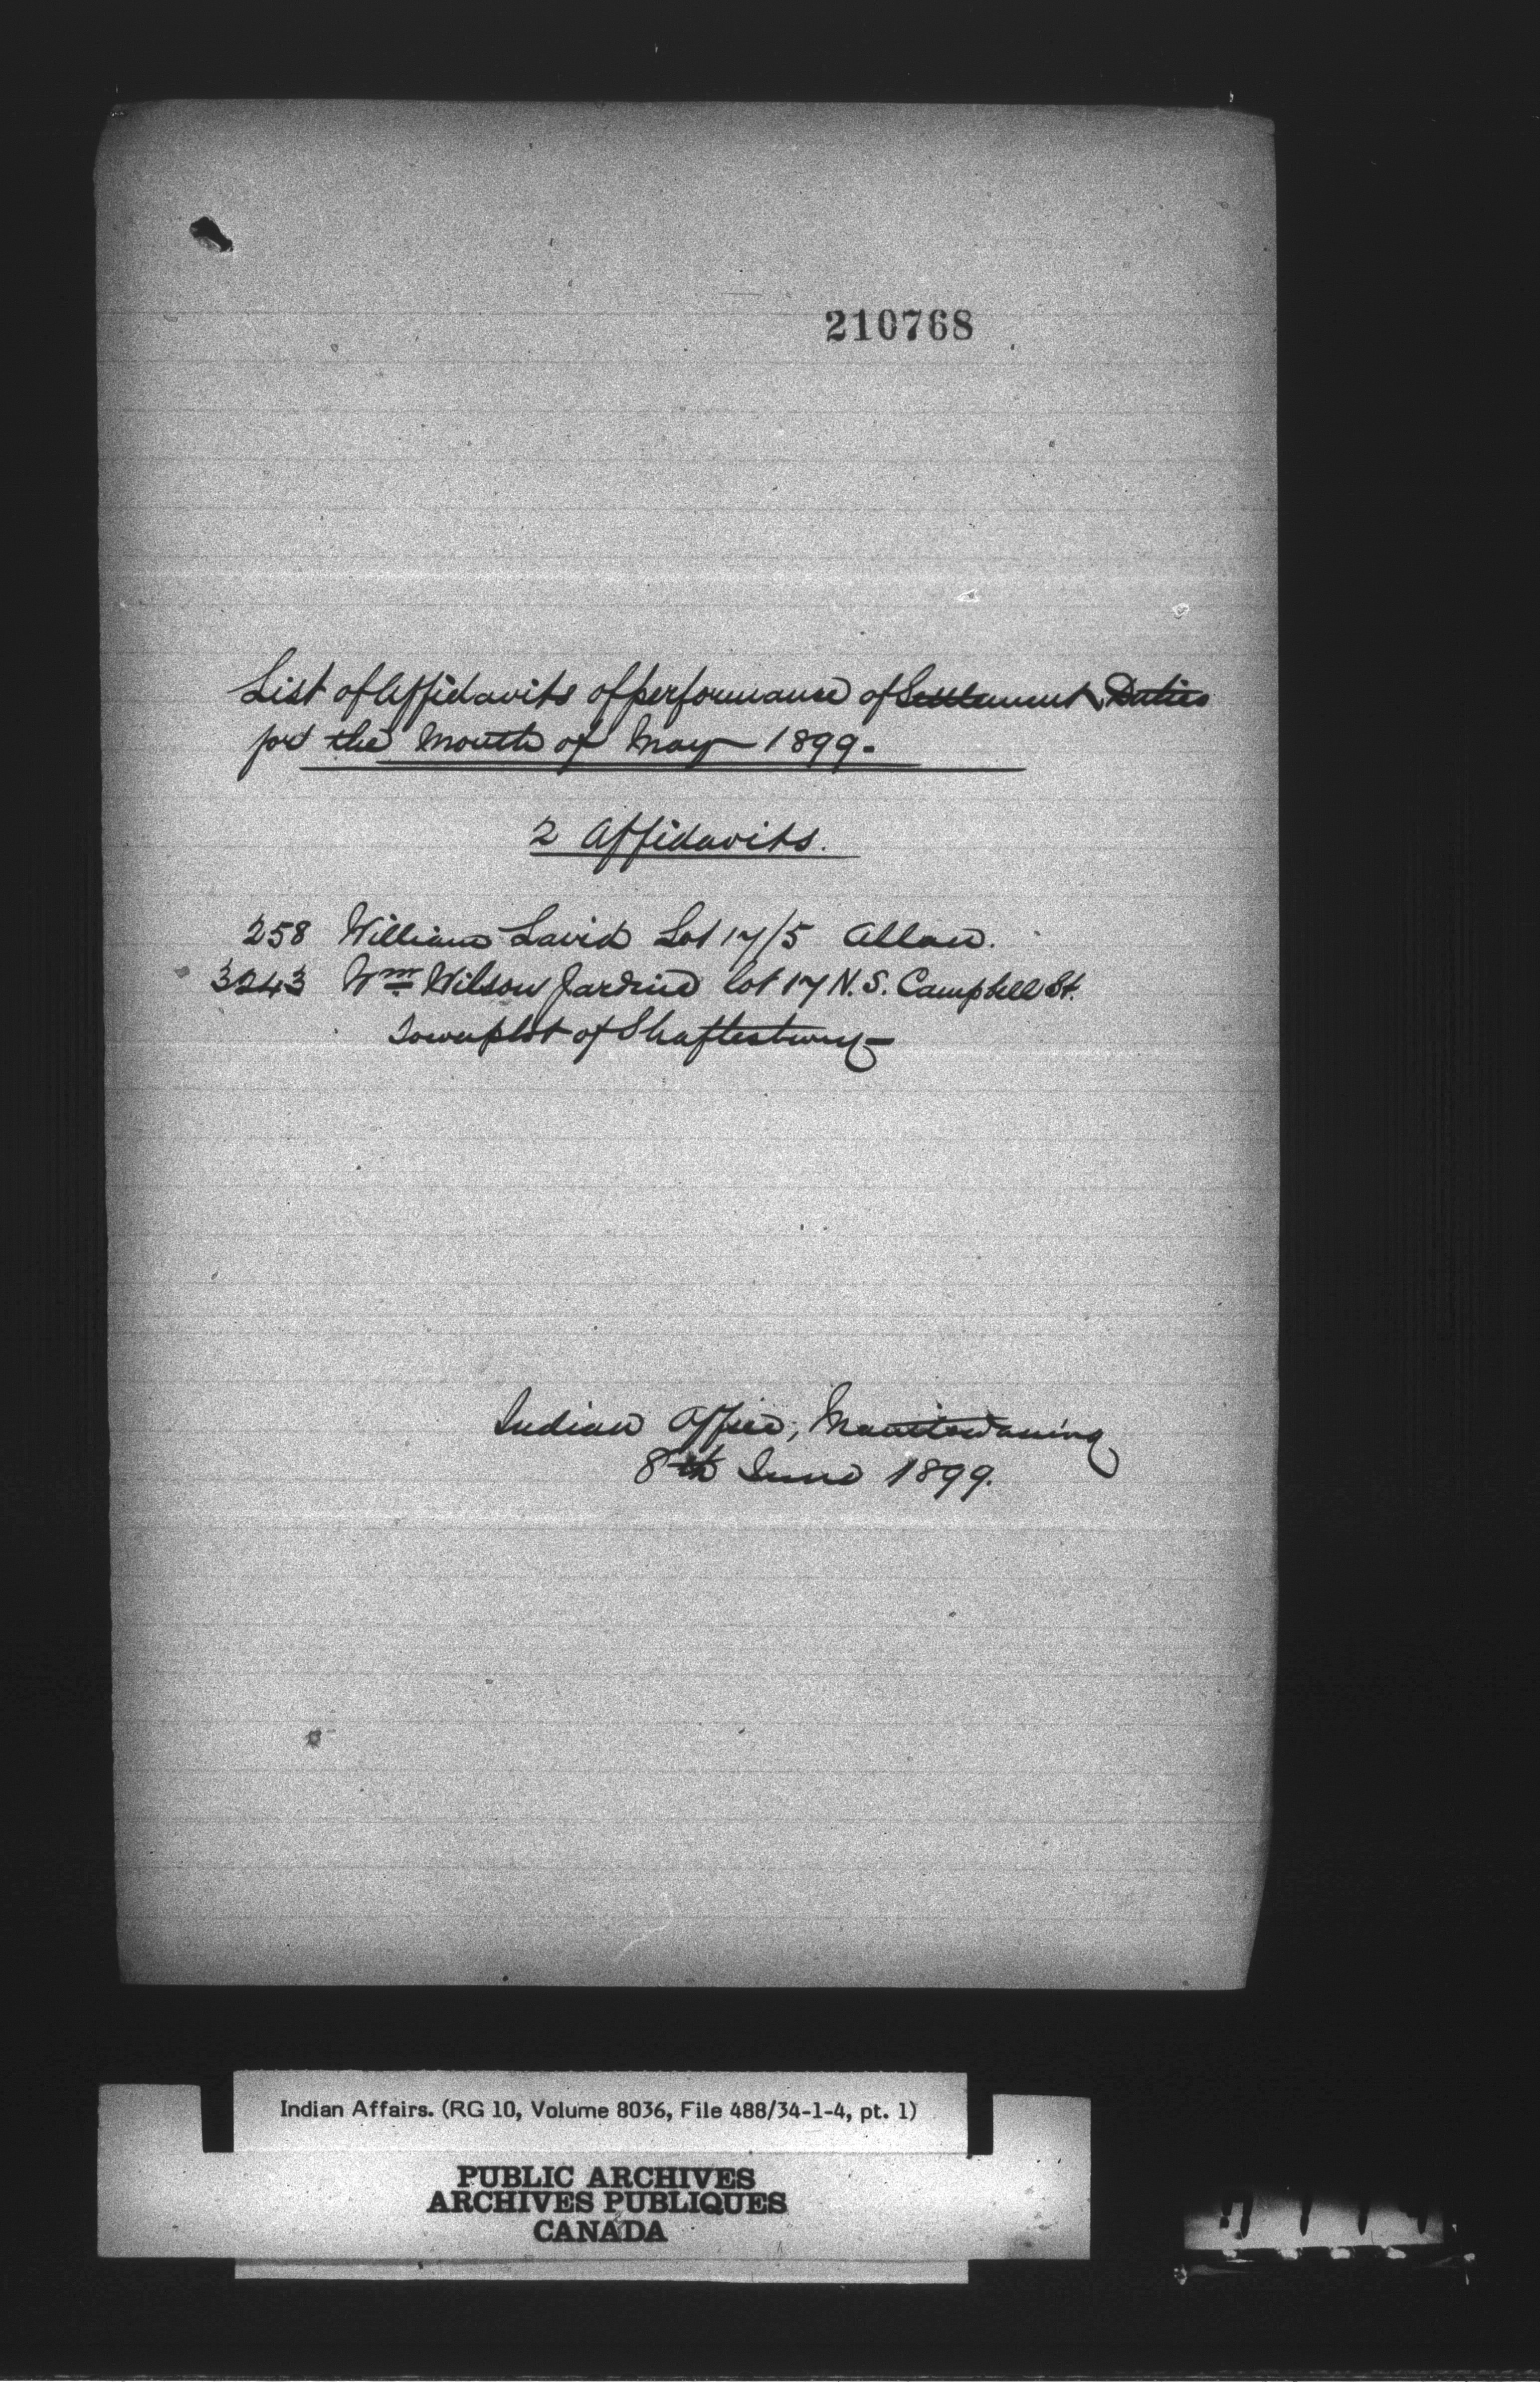 210768
List of Affidavits of performance of Settlement Duties
for the Month of May 1899.
2 Affidavits.
258 William Laird Lot 17/5 Allan.
3243 Wm Wilson Jardine lot 17 N.S. Campbell St.
Townplot of Shaftesbury
Indian Office, Manitowaning
8th June 1899.
Indian Affairs. (RG 10, Volume 8036, File 488/34-1-4, pt. 1)
PUBLIC ARCHIVES
ARCHIVES PUBLIQUES
CANADA